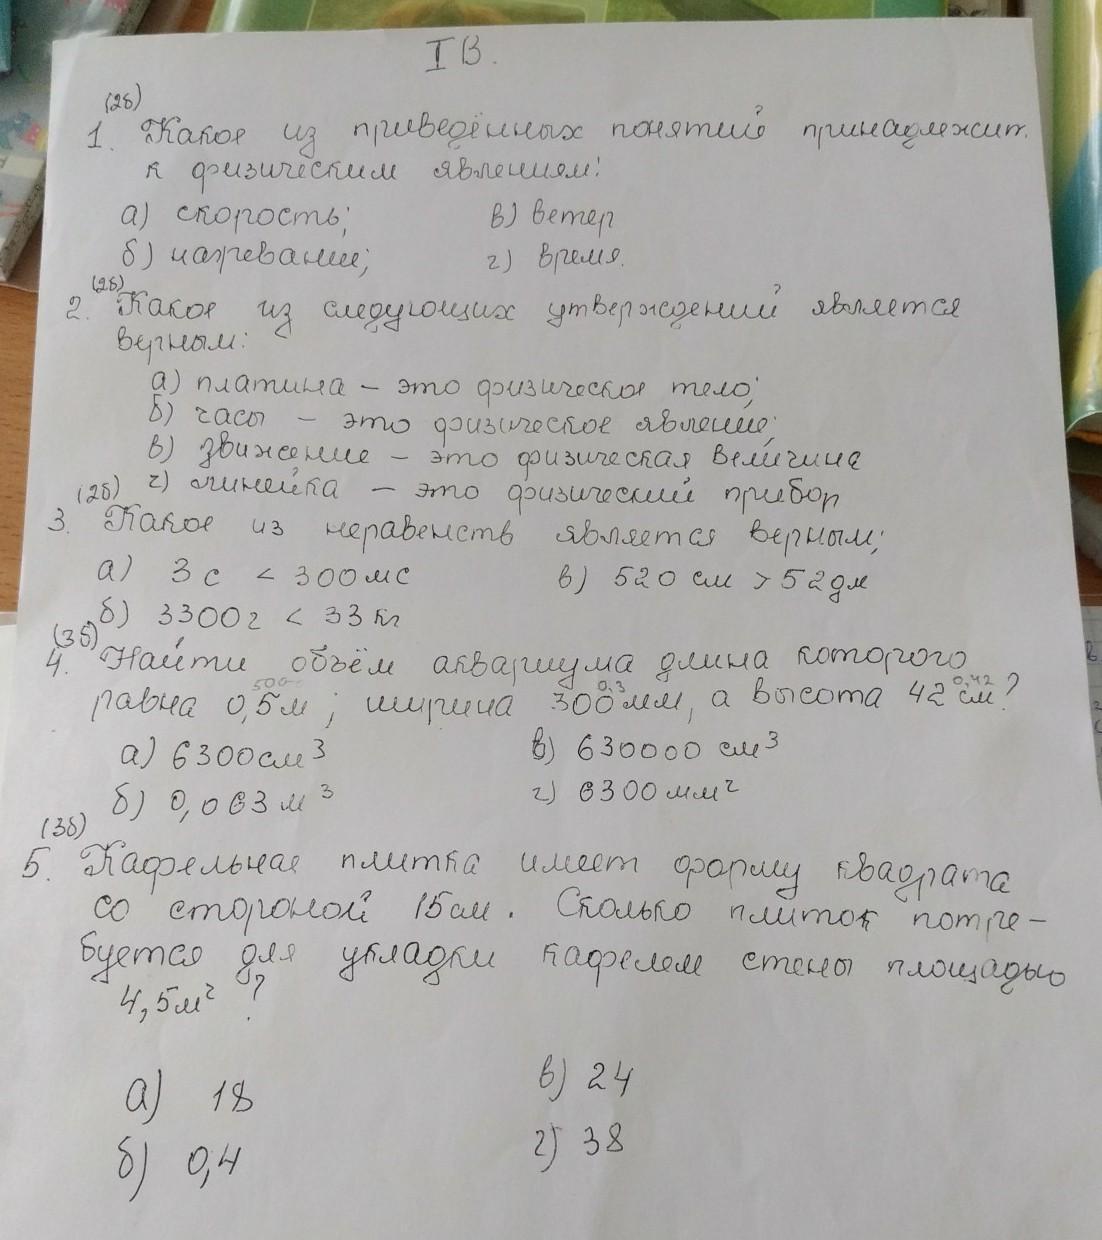 I В.
(2б)
1. Какое из приведённых понятий принадлежит
к физическим явлениям:
а) скорость; в) ветер
б) нагревание; г) время.
(2б)
2. Какое из следующих утверждений является
верным:
а) платина – это физическое тело;
б) часы – это физическое явление;
в) движение – это физическая величина
(2б) г) линейка – это физический прибор
3. Какое из неравенств является верным;
а) 3 с < 300 мс в) 520 см > 52 дм
б) 3300 г < 33 кг
(3б)
4. Найти объём аквариума длина которого
500 0,3 0,42
равна 0,5 м; ширина 300 мм, а высота 42 см?
а) 6300 см³ в) 630000 см³
б) 0,063 м³ г) 6300 мм²
(3б)
5. Кафельная плитка имеет форму квадрата
со стороной 15 см. Сколько плиток потре-
буется для укладки кафелем стены площадью
4,5 м² ?
а) 18 в) 24
б) 0,4 г) 38